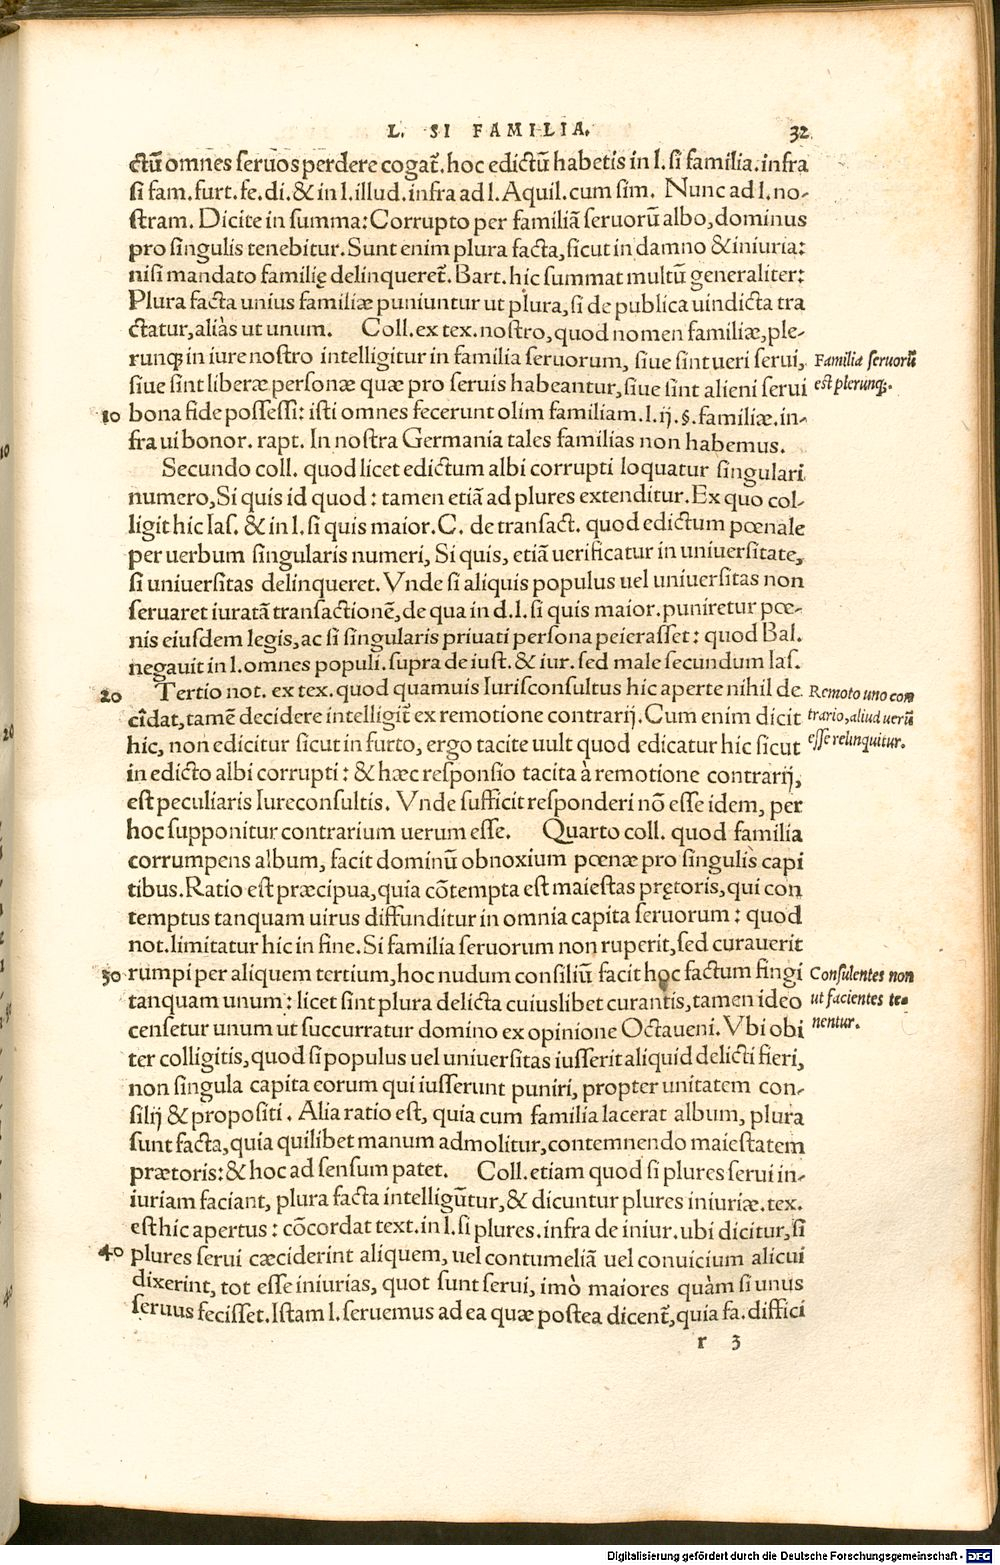 L. SI FAMILIA. 32
ctũ omnes seruos perdere cogat̃. hoc edictũ habetis in l. si familia. infra
si fam. furt. fe. di. & in l. illud. infra ad l. Aquil. cum sim. Nunc ad l. no-
stram. Dicite in summa: Corrupto per familiã seruorũ albo, dominus
pro singulis tenebitur. Sunt enim plura facta, sicut in damno & iniuria:
nisi mandato familię delinqueret̃. Bart. hic summat multũ generaliter:
Plura facta unius familiæ puniuntur ut plura, si de publica uindicta tra
ctatur, aliàs ut unum. Coll. ex tex. nostro, quod nomen familiæ, ple-
runq; in iure nostro intelligitur in familia seruorum, siue sint ueri serui,
Familia seruorũ
siue sint liberæ personæ quæ pro seruis habeantur, siue sint alieni serui
est plerunq;.
10 bona fide possessi: isti omnes fecerunt olim familiam. l. ij. §. familiæ. in-
fra ui bonor. rapt. In nostra Germania tales familias non habemus.
Secundo coll. quod licet edictum albi corrupti loquatur singulari
numero, Si quis id quod: tamen etiã ad plures extenditur. Ex quo col-
ligit hic Ias. & in l. si quis maior. C. de transact. quod edictum pœnale
per uerbum singularis numeri, Si quis, etiã uerificatur in uniuersitate,
si uniuersitas delinqueret. Vnde si aliquis populus uel uniuersitas non
seruaret iuratã transactionẽ, de qua in d. l. si quis maior. puniretur pœ-
nis eiusdem legis, ac si singularis priuati persona peierasset: quod Bal.
negauit in l. omnes populi. supra de iust. & iur. sed male secundum Ias.
20 Tertio not. ex tex. quod quamuis Iurisconsultus hic aperte nihil de
Remoto uno con
cĩdat, tamẽ decidere intelligit̃ ex remotione contrarij. Cum enim dicit
trario, aliud uerũ
hic, non edicitur sicut in furto, ergo tacite uult quod edicatur hic sicut
esse relinquitur.
in edicto albi corrupti: & hæc responsio tacita à remotione contrarij,
est peculiaris Iureconsultis. Vnde sufficit responderi nõ esse idem, per
hoc supponitur contrarium uerum esse. Quarto coll. quod familia
corrumpens album, facit dominũ obnoxium pœnæ pro singulis capi
tibus. Ratio est præcipua, quia cõtempta est maiestas prętoris, qui con
temptus tanquam uirus diffunditur in omnia capita seruorum: quod
not. limitatur hic in fine. Si familia seruorum non ruperit, sed curauerit
30 rumpi per aliquem tertium, hoc nudum consiliũ facit hoc factum fingi
Consulentes non
tanquam unum: licet sint plura delicta cuiuslibet curantis, tamen ideo
ut facientes te-
censetur unum ut succurratur domino ex opinione Octaueni. Vbi obi
nentur.
ter colligitis, quod si populus uel uniuersitas iusserit aliquid delicti fieri,
non singula capita eorum qui iusserunt puniri, propter unitatem con-
silij & propositi. Alia ratio est, quia cum familia lacerat album, plura
sunt facta, quia quilibet manum admolitur, contemnendo maiestatem
prætoris: & hoc ad sensum patet. Coll. etiam quod si plures serui in-
iuriam faciant, plura facta intelligũtur, & dicuntur plures iniuriæ. tex.
est hic apertus: cõcordat text. in l. si plures. infra de iniur. ubi dicitur, si
40 plures serui cæciderint aliquem, uel contumeliã uel conuicium alicui
dixerint, tot esse iniurias, quot sunt serui, imò maiores quàm si unus
seruus fecisset. Istam l. seruemus ad ea quæ postea dicent̃, quia fa. diffici
r 3
Digitalisierung gefördert durch die Deutsche Forschungsgemeinschaft - DFG